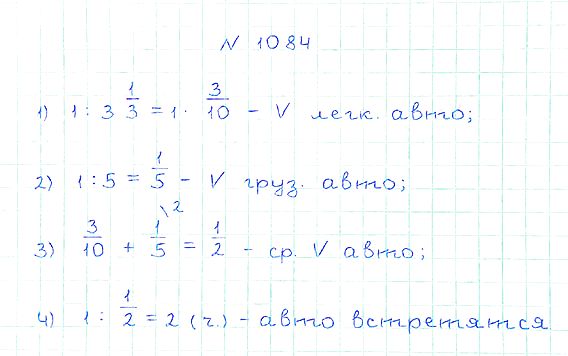 N 1084
1) 1 : 3 1/3 = 1 · 3/10 - V легк. авто;
2) 1 : 5 = 1/5 - V груз. авто;
3) 3/10 + 1/5 \2 = 1/2 - ср. V авто;
4) 1 : 1/2 = 2 (ч.) - авто встретятся